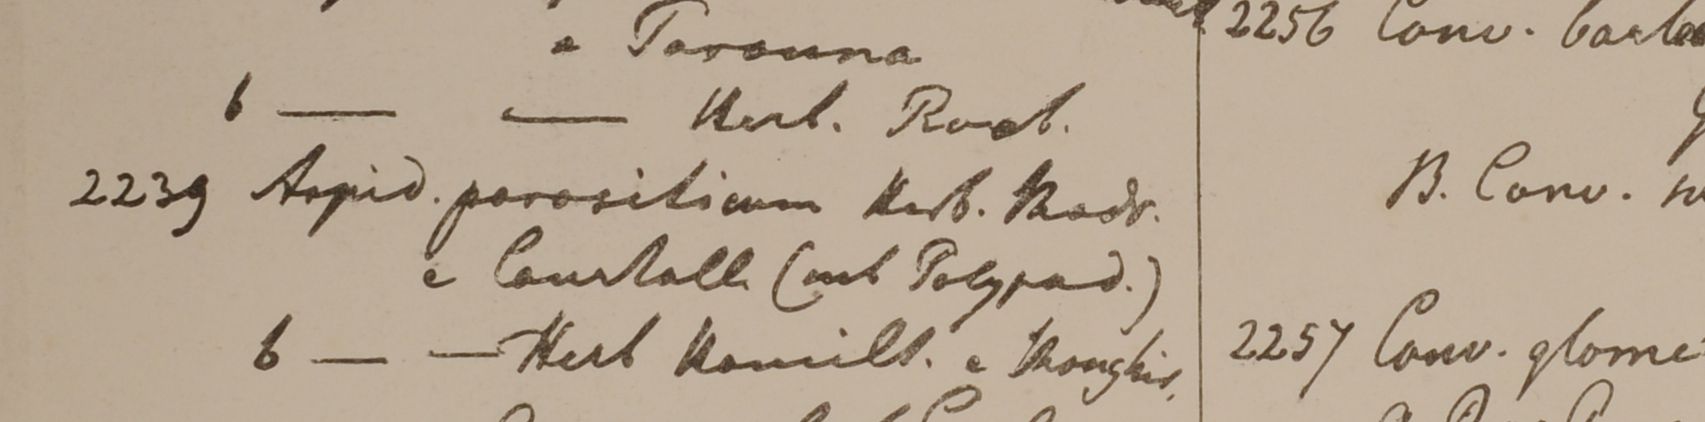 e Tavouna
b — — Herb. Roxb.
2239 Aspid. parasiticum Herb. Madr.
e Courtall (sub Polypod.)
b — — Herb Hamilt. e Monghir,
2256 Conv. barba
B. Conv.
2257 Conv. glome